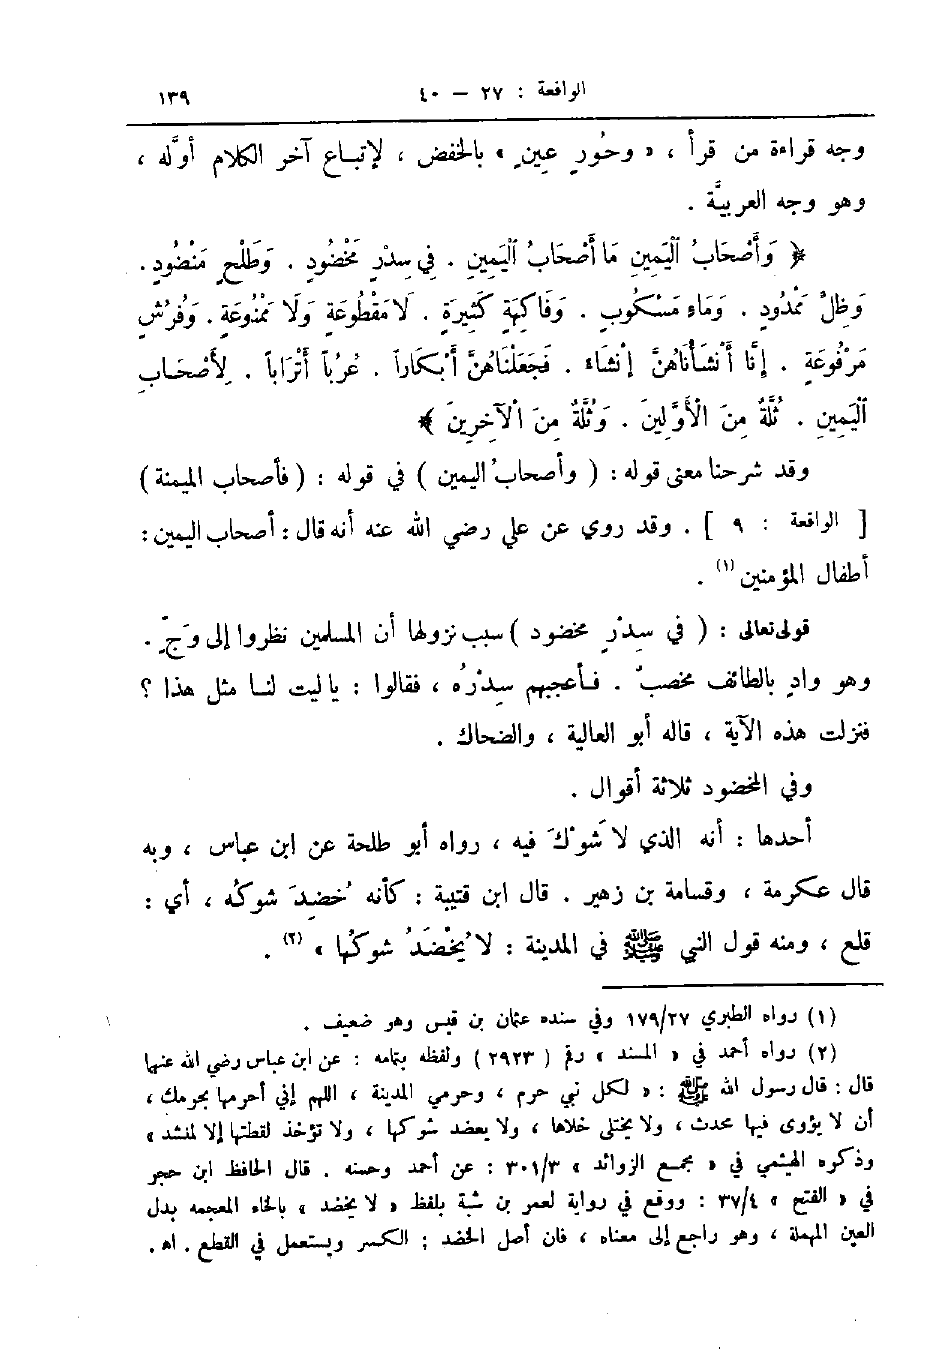 الواقعة : ٢٧ – ٤٠
١٣٩
وجه قراءة من قرأ ، « وحُورٍ عِينٍ » بالخفض ، لإتباع آخر الكلام أوَّله ،
وهو وجه العربيَّة .
﴿ وَأَصْحَابُ ٱلْيَمِينِ مَا أَصْحَابُ ٱلْيَمِينِ . فِي سِدْرٍ مَخْضُودٍ . وَطَلْحٍ مَنْضُودٍ .
وَظِلٍّ مَمْدُودٍ . وَمَاءٍ مَسْكُوبٍ . وَفَاكِهَةٍ كَثِيرَةٍ . لَا مَقْطُوعَةٍ وَلَا مَمْنُوعَةٍ . وَفُرُشٍ
مَرْفُوعَةٍ . إِنَّا أَنْشَأْنَاهُنَّ إِنْشَاءً . فَجَعَلْنَاهُنَّ أَبْكَاراً . عُرُباً أَتْرَاباً . لِأَصْحَابِ
ٱلْيَمِينِ . ثُلَّةٌ مِنَ الْأَوَّلِينَ . وَثُلَّةٌ مِنَ الْآخِرِينَ ﴾
وقد شرحنا معنى قوله : ( وأصحابُ اليمين ) في قوله : ( فأصحاب الميمنة )
[ الواقعة : ٩ ] . وقد روي عن علي رضي الله عنه أنه قال : أصحاب اليمين :
أطفال المؤمنين (١) .
قوله تعالى : ( في سِدْرٍ مخضود ) سبب نزولها أن المسلمين نظروا إلى وَجٍّ .
وهو وادٍ بالطائف مخصبٌ . فأعجبهم سِدْرُه ، فقالوا : يا ليت لنا مثل هذا ؟
فنزلت هذه الآية ، قاله أبو العالية ، والضحاك .
وفي المخضود ثلاثة أقوال .
أحدها : أنه الذي لا شَوْكَ فيه ، رواه أبو طلحة عن ابن عباس ، وبه
قال عكرمة ، وقسامة بن زهير . قال ابن قتيبة : كأنه خُضِدَ شوكُه ، أي :
قلع ، ومنه قول النبي ﷺ في المدينة : لا يُخْضَدُ شوكُها » (٢) .
(١) رواه الطبري ١٧٩/٢٧ وفي سنده عثمان بن قيس وهو ضعيف .
(٢) رواه أحمد في « المسند » رقم ( ٢٩٢٣ ) ولفظه بتمامه : عن ابن عباس رضي الله عنهما
قال : قال رسول الله ﷺ : « لكل نبي حرم ، وحرمي المدينة ، اللهم إني أحرمها بحرمك ،
أن لا يؤوى فيها محدث ، ولا يختلى خلاها ، ولا يعضد شوكها ، ولا تؤخذ لقطتها إلا لمنشد »
وذكره الهيثمي في « مجمع الزوائد » ٣٠١/٣ : عن أحمد وحسنه . قال الحافظ ابن حجر
في « الفتح » ٣٧/٤ : ووقع في رواية لعمر بن شبة بلفظ « لا يخضد » بالخاء المعجمه بدل
العين المهملة ، وهو راجع إلى معناه ، فان أصل الخضد : الكسر ويستعمل في القطع . اه .